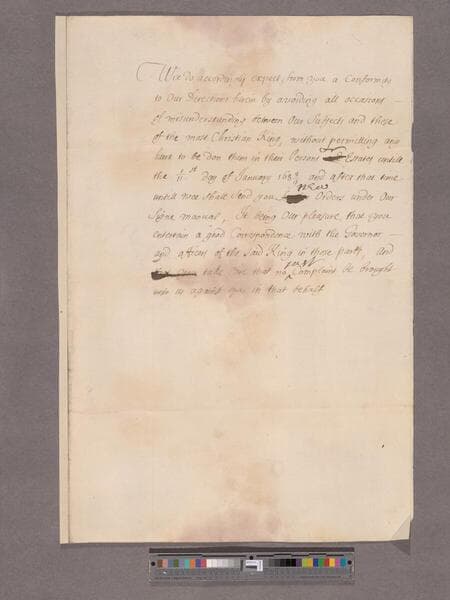 Wee do accordingly expect, from you a Conformity
to Our Directions herein by avoiding all occasions
of misunderstanding between Our Subjects and those
of the most Christian King, without permitting any
hurt to be don them in their Persons or Estates untill
the 11st Day of January 168 and after that time
untill wee shall Send you new Orders under Our
Signe manual, It being Our pleasure that you
entertain a good Correspondence with the Governor
and officers of the Said King in those parts, And
take care that no just Complaint be brought
unto us against you in that behalf